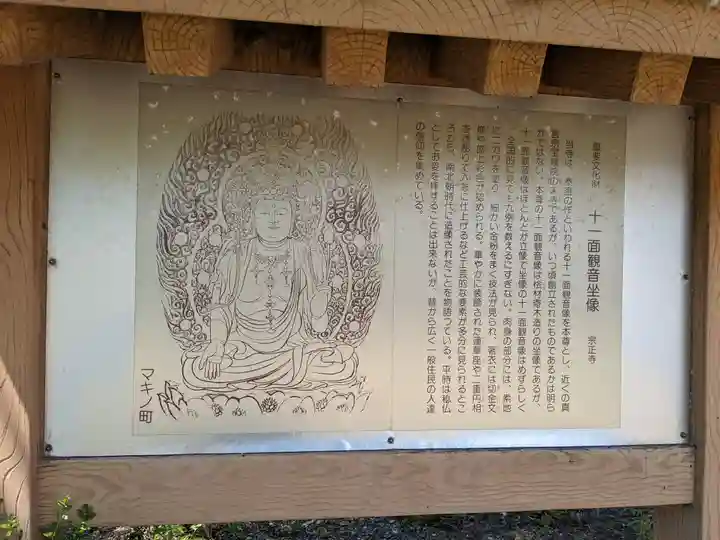 重要文化財 十一面観音坐像 宗正寺
当寺は、泰澄の作といわれる十一面観音像を本尊とし、近くの真
言宗宝幢院の末寺であるが、いつ頃創立されたものであるかは明ら
かではない。本尊の十一面観音像は桧材寄木造りの坐像であるが、
十一面観音像はほとんどが立像で坐像の十一面観音像はめずらしく
全国的に見ても九例を数えるにすぎない。肉身の部分には、素地
に二カワを塗り、細かい金粉をまく技法が見られ、著衣には切金文
様や盛上彩色が認められる。華やかに装飾された蓮華座や二重円相
を透彫りでみたに仕上げるなど工芸的な要素が多分に見られるとこ
ろから、南北朝時代に造像されたことを物語っている。平時は秘仏
としてお姿を拝することは出来ないが、昔から広く一般住民の人達
の信仰を集めている。
マキノ町